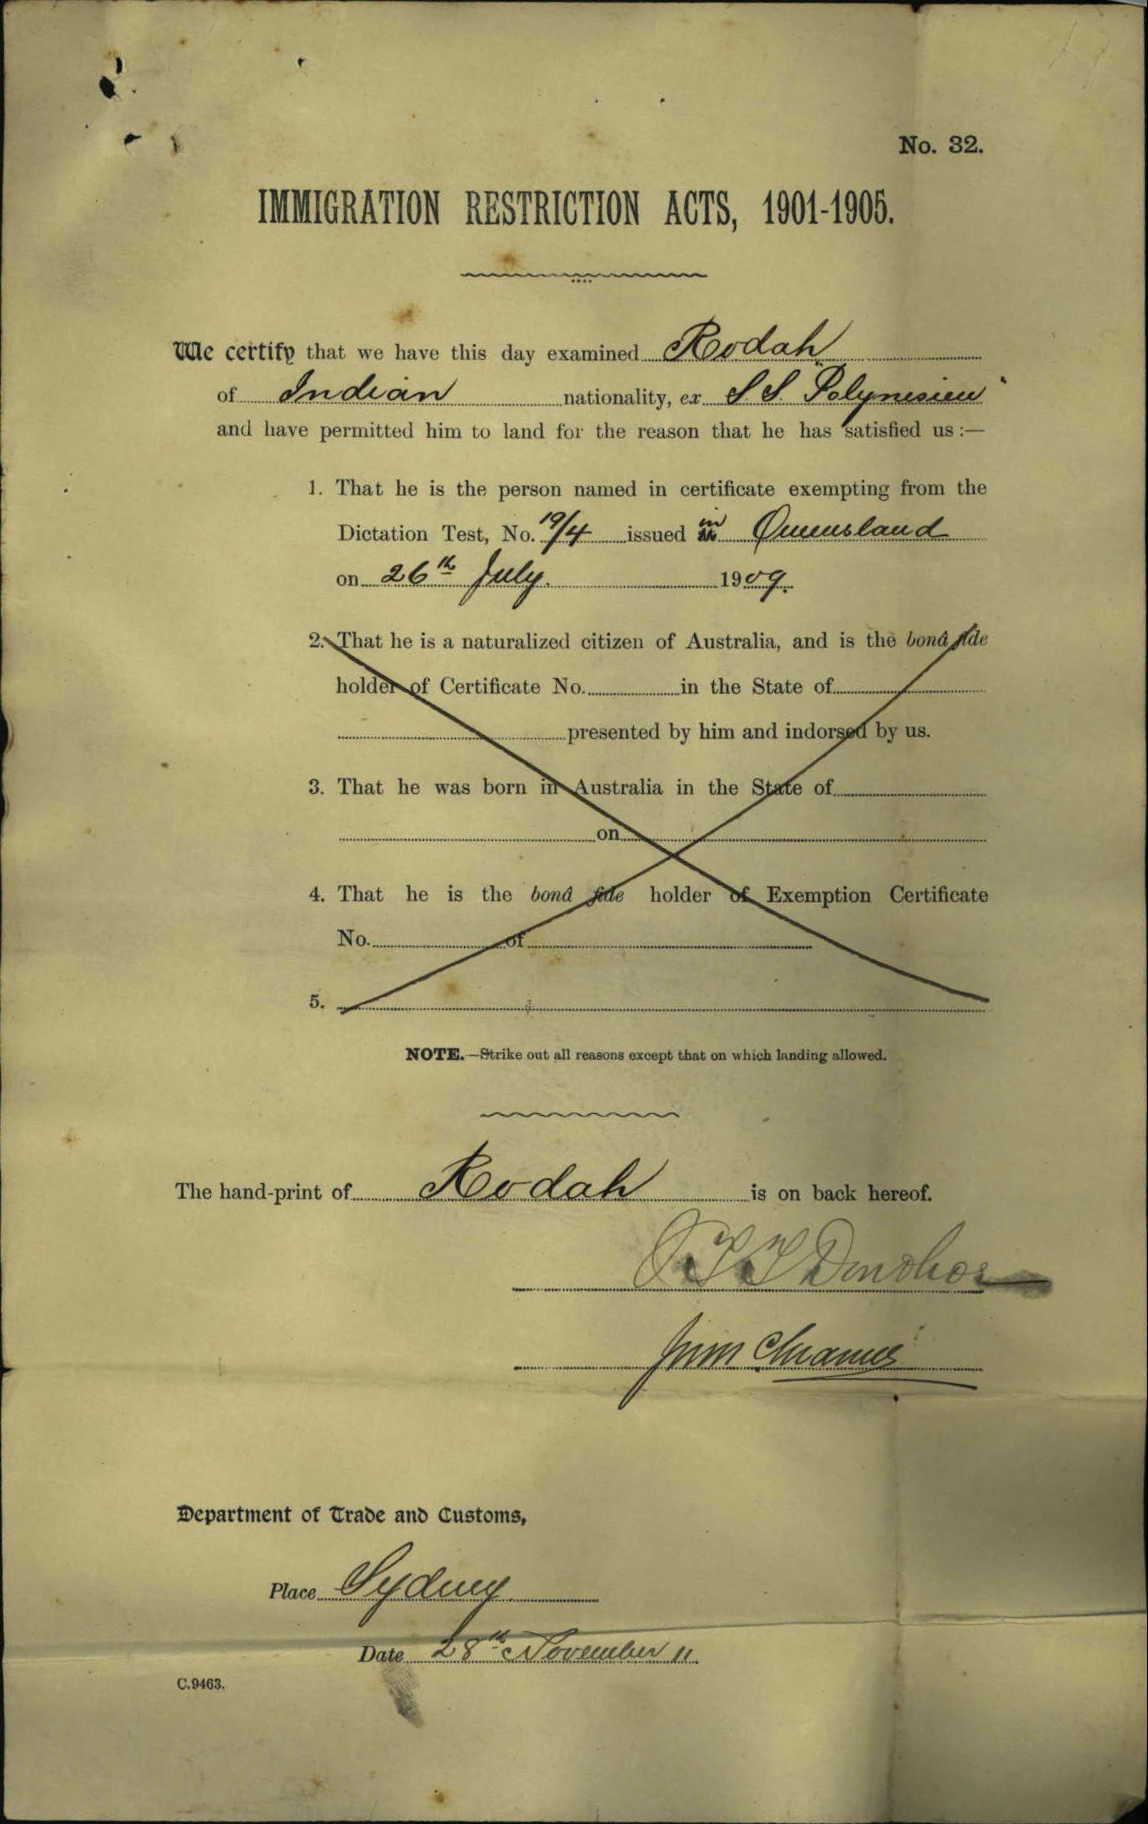 No. 32.
IMMIGRATION RESTRICTION ACTS, 1901-1905.
We certify that we have this day examined Rodah
of Indian nationality, ex S S "Polynesien"
and have permitted him to land for the reason that he has satisfied us :—
1. That he is the person named in certificate exempting from the
Dictation Test, No. 19/4 issued in Queensland
on 26th July. 1909.
2. That he is a naturalized citizen of Australia, and is the bonâ fide
holder of Certificate No. in the State of
presented by him and indorsed by us.
3. That he was born in Australia in the State of
on
4. That he is the bonâ fide holder of Exemption Certificate
No. of
5.
NOTE.—Strike out all reasons except that on which landing allowed.
The hand-print of Rodah is on back hereof.
Donohoe
Department of Trade and Customs,
Place Sydney
Date 28th November 11.
C.9463.